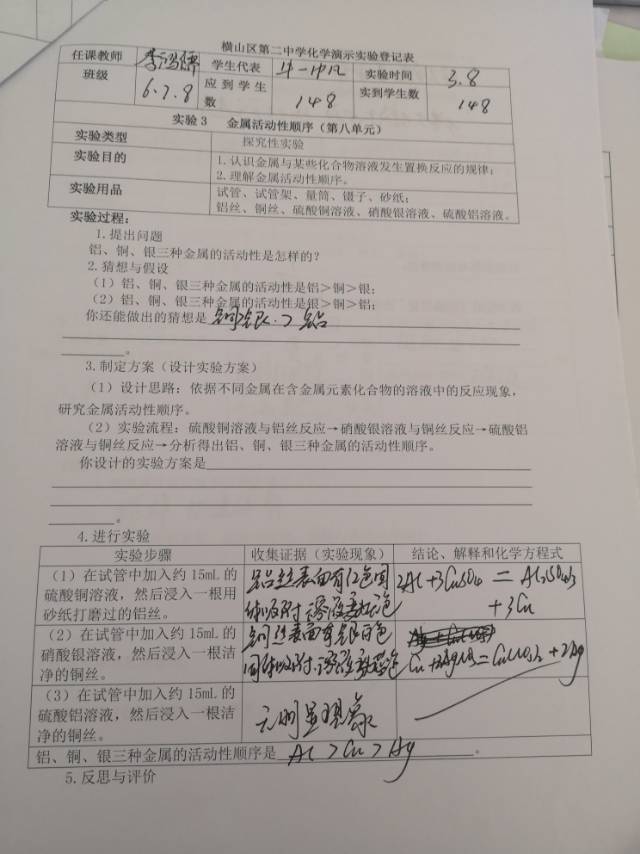 横山区第二中学化学演示实验登记表
任课教师 学生代表 实验时间 3.8
班级 6.7.8 应到学生数 148 实到学生数 148
实验3 金属活动性顺序（第八单元）
实验类型 探究性实验
实验目的 1.认识金属与某些化合物溶液发生置换反应的规律；
2.理解金属活动性顺序。
实验用品 试管、试管架、量筒、镊子、砂纸；
铝丝、铜丝、硫酸铜溶液、硝酸银溶液、硫酸铝溶液。
实验过程：
1.提出问题
铝、铜、银三种金属的活动性是怎样的？
2.猜想与假设
（1）铝、铜、银三种金属的活动性是铝＞铜＞银；
（2）铝、铜、银三种金属的活动性是银＞铜＞铝；
你还能做出的猜想是 铜 银 > 铝
。
3.制定方案（设计实验方案）
（1）设计思路：依据不同金属在含金属元素化合物的溶液中的反应现象，
研究金属活动性顺序。
（2）实验流程：硫酸铜溶液与铝丝反应→硝酸银溶液与铜丝反应→硫酸铝
溶液与铜丝反应→分析得出铝、铜、银三种金属的活动性顺序。
你设计的实验方案是
。
4.进行实验
实验步骤 收集证据（实验现象） 结论、解释和化学方程式
（1）在试管中加入约15mL的
硫酸铜溶液，然后浸入一根用
砂纸打磨过的铝丝。
铝丝表面有红色固
体吸附,溶液变为无色
2Al+3CuSO4 = Al2(SO4)3
+3Cu
（2）在试管中加入约15mL的
硝酸银溶液，然后浸入一根洁
净的铜丝。
铜丝表面有银白色
固体吸附,溶液变蓝色
Cu+2AgNO3=Cu(NO3)2+2Ag
（3）在试管中加入约15mL的
硫酸铝溶液，然后浸入一根洁
净的铜丝。
无明显现象
铝、铜、银三种金属的活动性顺序是 Al > Cu > Ag 。
5.反思与评价